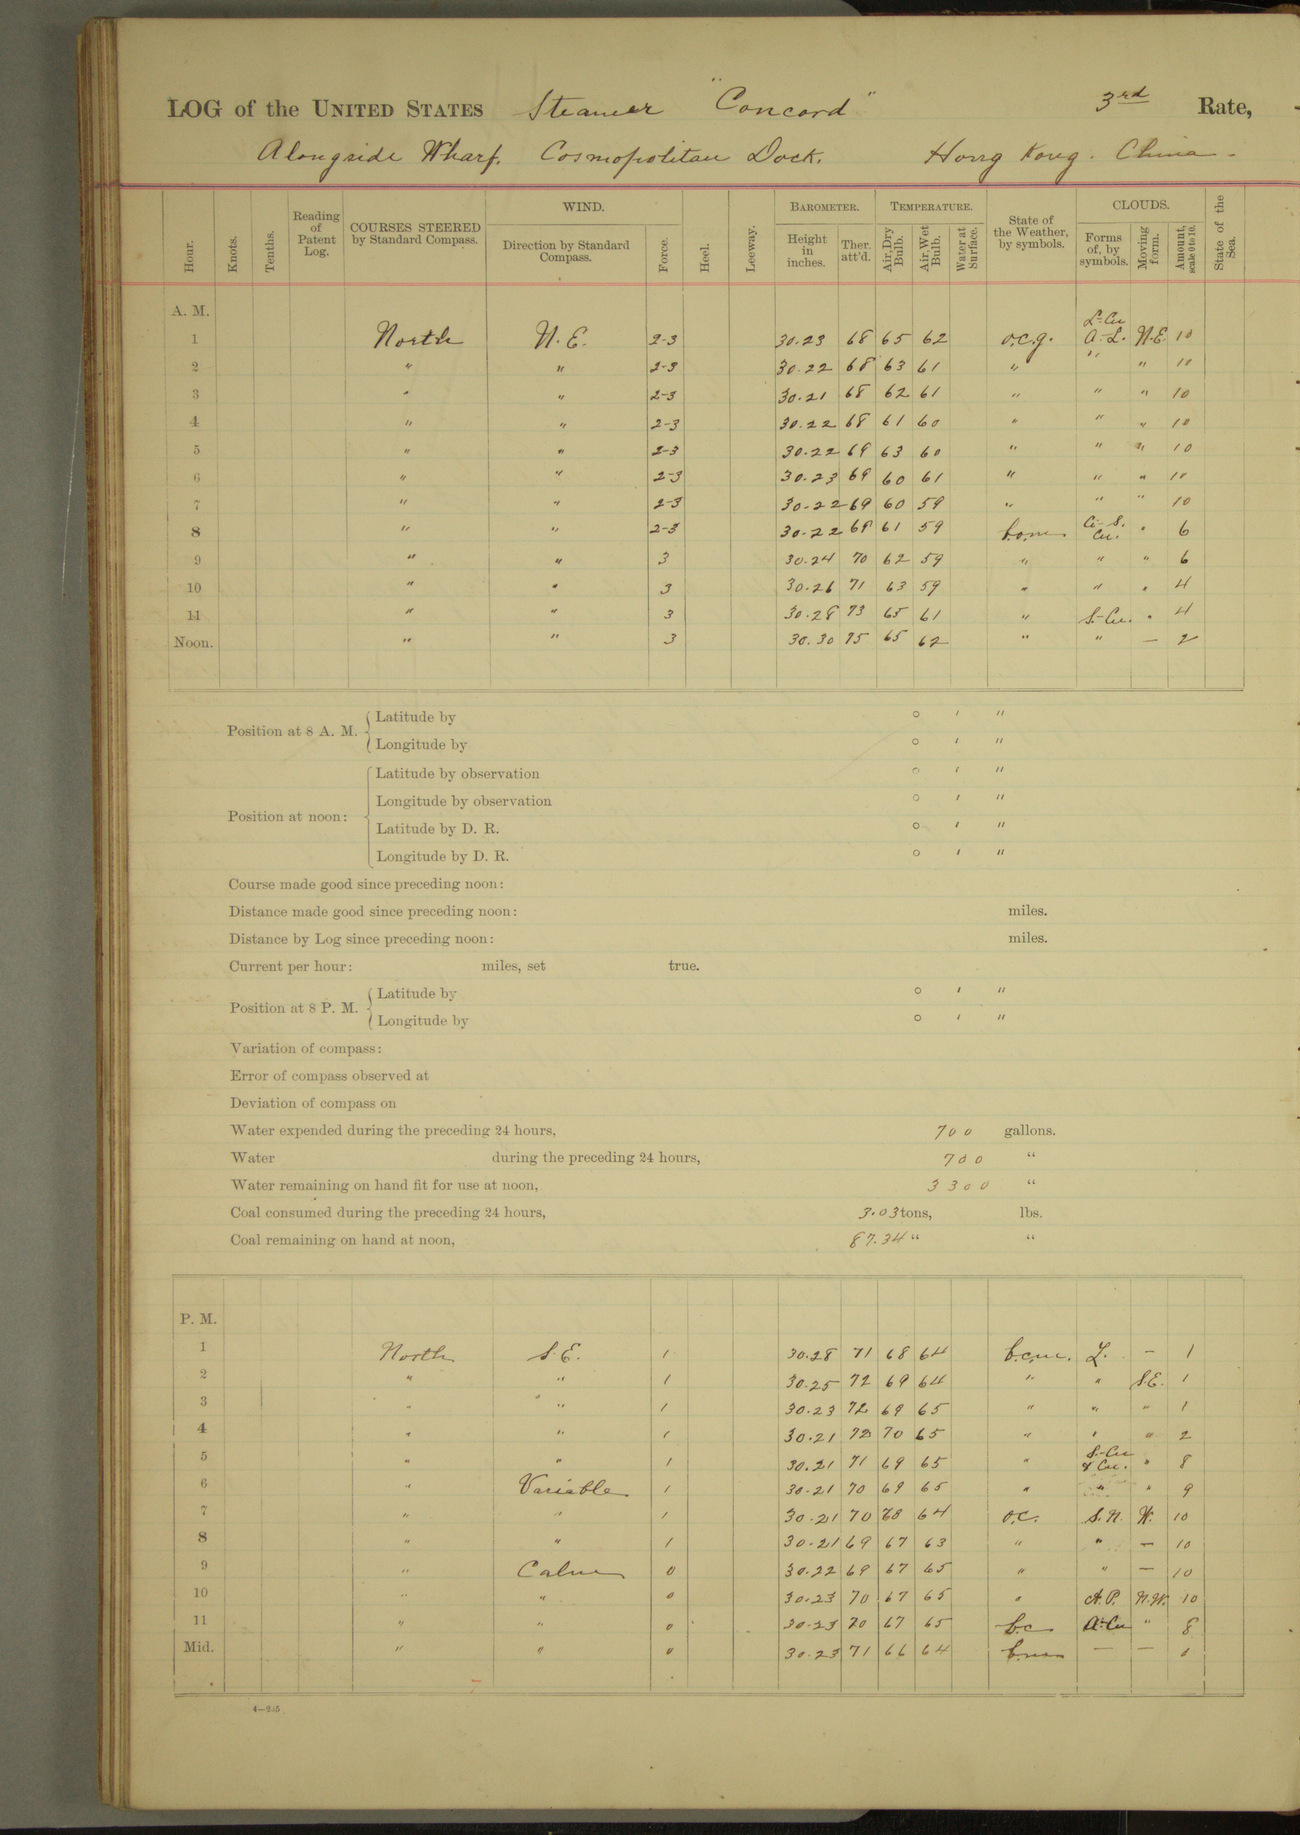 LOG of the UNITED STATES Steamer "Concord" 3rd Rate,
Alongside Wharf, Cosmopolitan Dock. Hong Kong. China -
Hour. Knots. Tenths. Reading of Patent Log. COURSES STEERED by Standard Compass. WIND. Direction by Standard Compass. Force. Heel. Leeway. BAROMETER. Height in inches. Ther. att'd. TEMPERATURE. Air, Dry Bulb. Air, Wet Bulb. Water at Surface. State of the Weather, by symbols. CLOUDS. Forms of, by symbols. Moving form. Amount, scale 0 to 10. State of the Sea.
A. M.
1 North N.E. 2-3 30.23 68 65 62 o.c.g. S-Cu A-S. N.E. 10
2 " " 2-3 30.22 68 63 61 " " " 10
3 " " 2-3 30.21 68 62 61 " " " 10
4 " " 2-3 30.22 68 61 60 " " " 10
5 " " 2-3 30.22 69 63 60 " " " 10
6 " " 2-3 30.23 69 60 61 " " " 10
7 " " 2-3 30.22 69 60 59 " " " 10
8 " " 2-3 30.22 69 61 59 Ci-S. Cu. " 6
9 " " 3 30.24 70 62 59 " " " 6
10 " " 3 30.26 71 63 59 " " " 4
11 " " 3 30.28 73 65 61 " S-Cu. " 4
Noon. " " 3 30.30 75 65 62 " " — 2
Position at 8 A. M. Latitude by ° ′ ″
Longitude by ° ′ ″
Position at noon: Latitude by observation ° ′ ″
Longitude by observation ° ′ ″
Latitude by D. R. ° ′ ″
Longitude by D. R. ° ′ ″
Course made good since preceding noon:
Distance made good since preceding noon: miles.
Distance by Log since preceding noon: miles.
Current per hour: miles, set true.
Position at 8 P. M. Latitude by ° ′ ″
Longitude by ° ′ ″
Variation of compass:
Error of compass observed at
Deviation of compass on
Water expended during the preceding 24 hours, 700 gallons.
Water during the preceding 24 hours, 700 "
Water remaining on hand fit for use at noon, 3300 "
Coal consumed during the preceding 24 hours, 3.03 tons, lbs.
Coal remaining on hand at noon, 87.34 " "
P. M.
1 North S.E. 1 30.28 71 68 64 b.c.m. S. — 1
2 " " 1 30.25 72 69 64 " " S.E. 1
3 " " 1 30.23 72 69 65 " " " 1
4 " " 1 30.21 72 70 65 " " " 2
5 " " 1 30.21 71 69 65 " S-Cu & Cu. " 8
6 " Variable 1 30.21 70 69 65 " " " 9
7 " " 1 30.21 70 68 64 o.c. S.N. W. 10
8 " " 1 30.21 69 67 63 " " — 10
9 " Calm 0 30.22 69 67 65 " " — 10
10 " " 0 30.23 70 67 65 " N.W. 10
11 " " 0 30.23 70 67 65 b.c A-Cu " 8
Mid. " " 0 30.23 71 66 64 — — 0
4—235